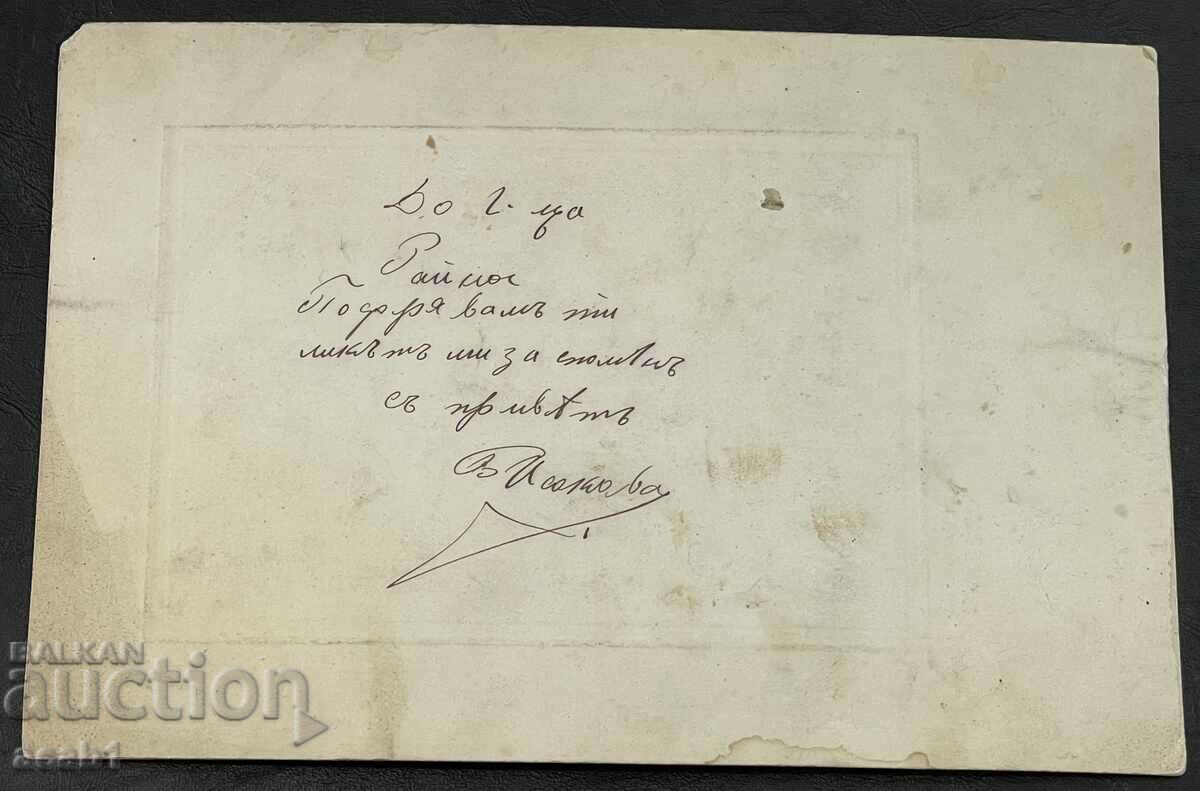 До Г-ца
Райна
Подарявамъ ти
ликътъ ми за споменъ
съ привѣтъ
В
BALKAN
auction
acab1